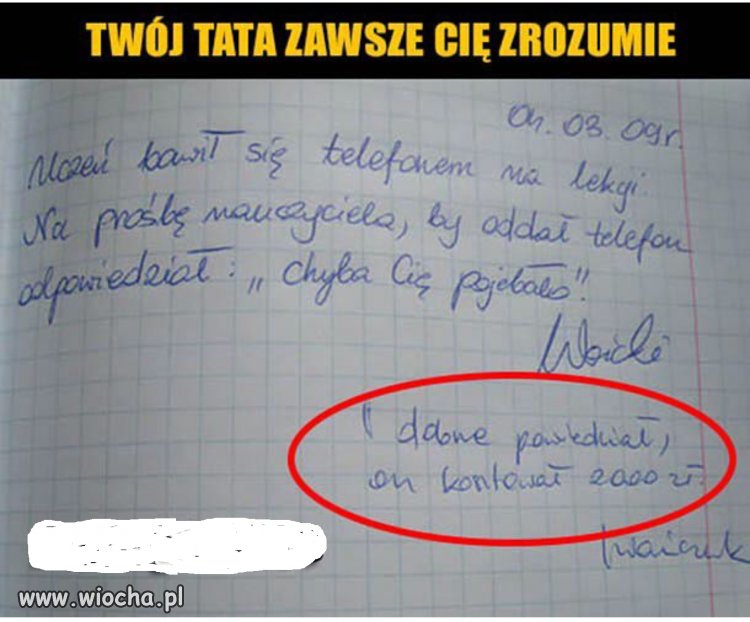 TWÓJ TATA ZAWSZE CIĘ ZROZUMIE
04.03.09r.
Uczeń bawił się telefonem na lekcji.
Na prośbę nauczyciela, by oddał telefon
odpowiedział: „Chyba Cię pojebało".
I dobrze powiedział,
on kosztował 2000 zł.
www.wiocha.pl